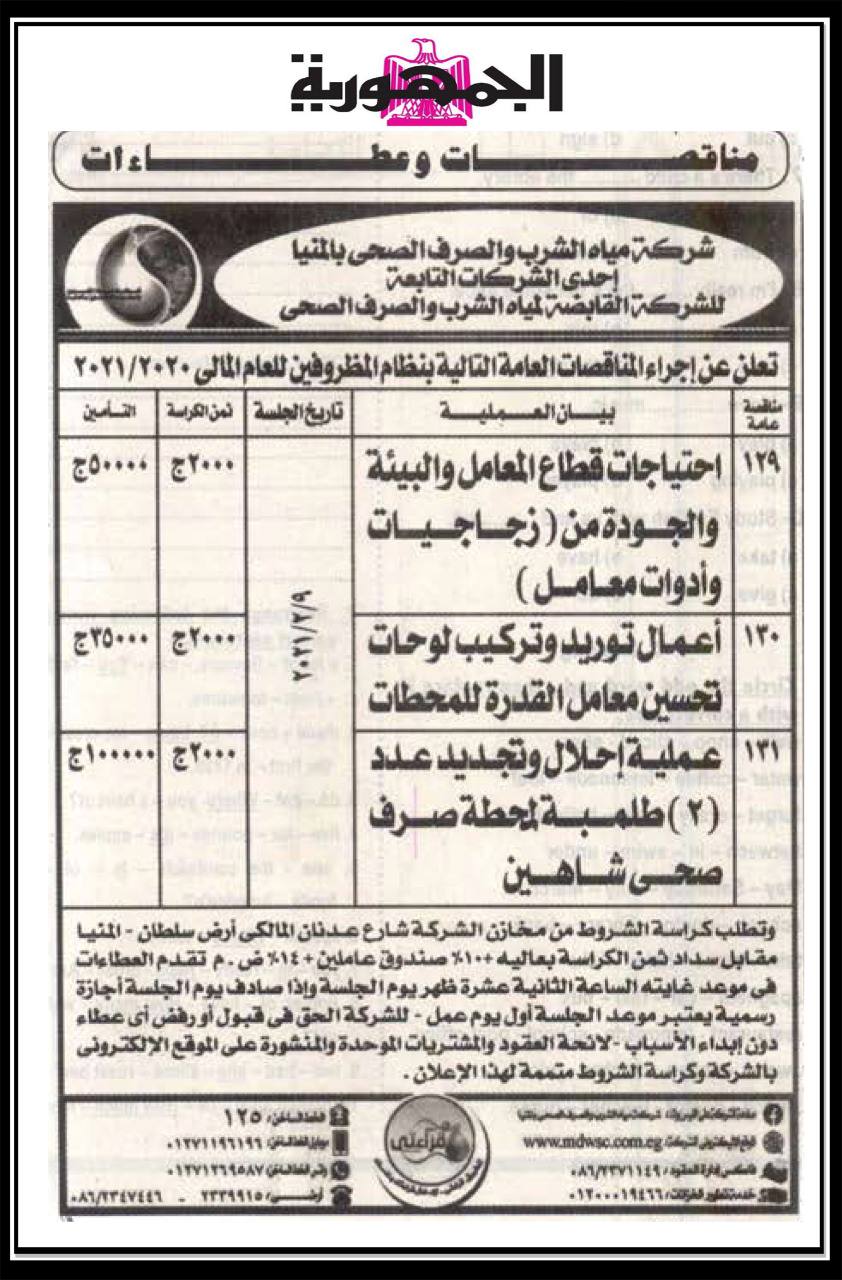 الجمهورية
مناقصات وعطاءات
شركة مياه الشرب والصرف الصحى بالمنيا
إحدى الشركات التابعة
للشركة القابضة لمياه الشرب والصرف الصحى
تعلن عن إجراء المناقصات العامة التالية بنظام المظروفين للعام المالى ٢٠٢١/٢٠٢٠
مناقصة عامة بيان العملية تاريخ الجلسة ثمن الكراسة التأمين
١٢٩ احتياجات قطاع المعامل والبيئة ٢٠٠٠ج ٥٠٠٠٠ج
والجودة من ( زجاجيات
وأدوات معامل )
٢٠٢١/٢/٩
١٣٠ أعمال توريد وتركيب لوحات ٢٠٠٠ج ٣٥٠٠٠ج
تحسين معامل القدرة للمحطات
١٣١ عملية احلال وتجديد عدد ٢٠٠٠ج ١٠٠٠٠٠ج
(٢) طلمبة لمحطة صرف
صحى شاهين
وتطلب كراسة الشروط من مخازن الشركة شارع عدنان المالكى أرض سلطان - المنيا
مقابل سداد ثمن الكراسة بعاليه +١٠٪ صندوق عاملين +١٤٪ ض . م تقدم العطاءات
فى موعد غايته الساعة الثانية عشرة ظهر يوم الجلسة وإذا صادف يوم الجلسة أجازة
رسمية يعتبر موعد الجلسة أول يوم عمل - للشركة الحق فى قبول أو رفض أى عطاء
دون إبداء الأسباب - لائحة العقود والمشتريات الموحدة والمنشورة على الموقع الإلكترونى
بالشركة وكراسة الشروط متممة لهذا الإعلان .
www.mdwsc.com.eg
٠٨٦/٢٣٧١١٤٩
٠١٢٠٠٠١٩٤٦٦
قراءتى
١٢٥
٠١٢٧١١٩٦١٩٦
٠١٢٧١٢٦٩٥٨٧
أرضى: ٢٣٣٩٩١٥ - ٠٨٦/٢٣٤٧٤٤٦